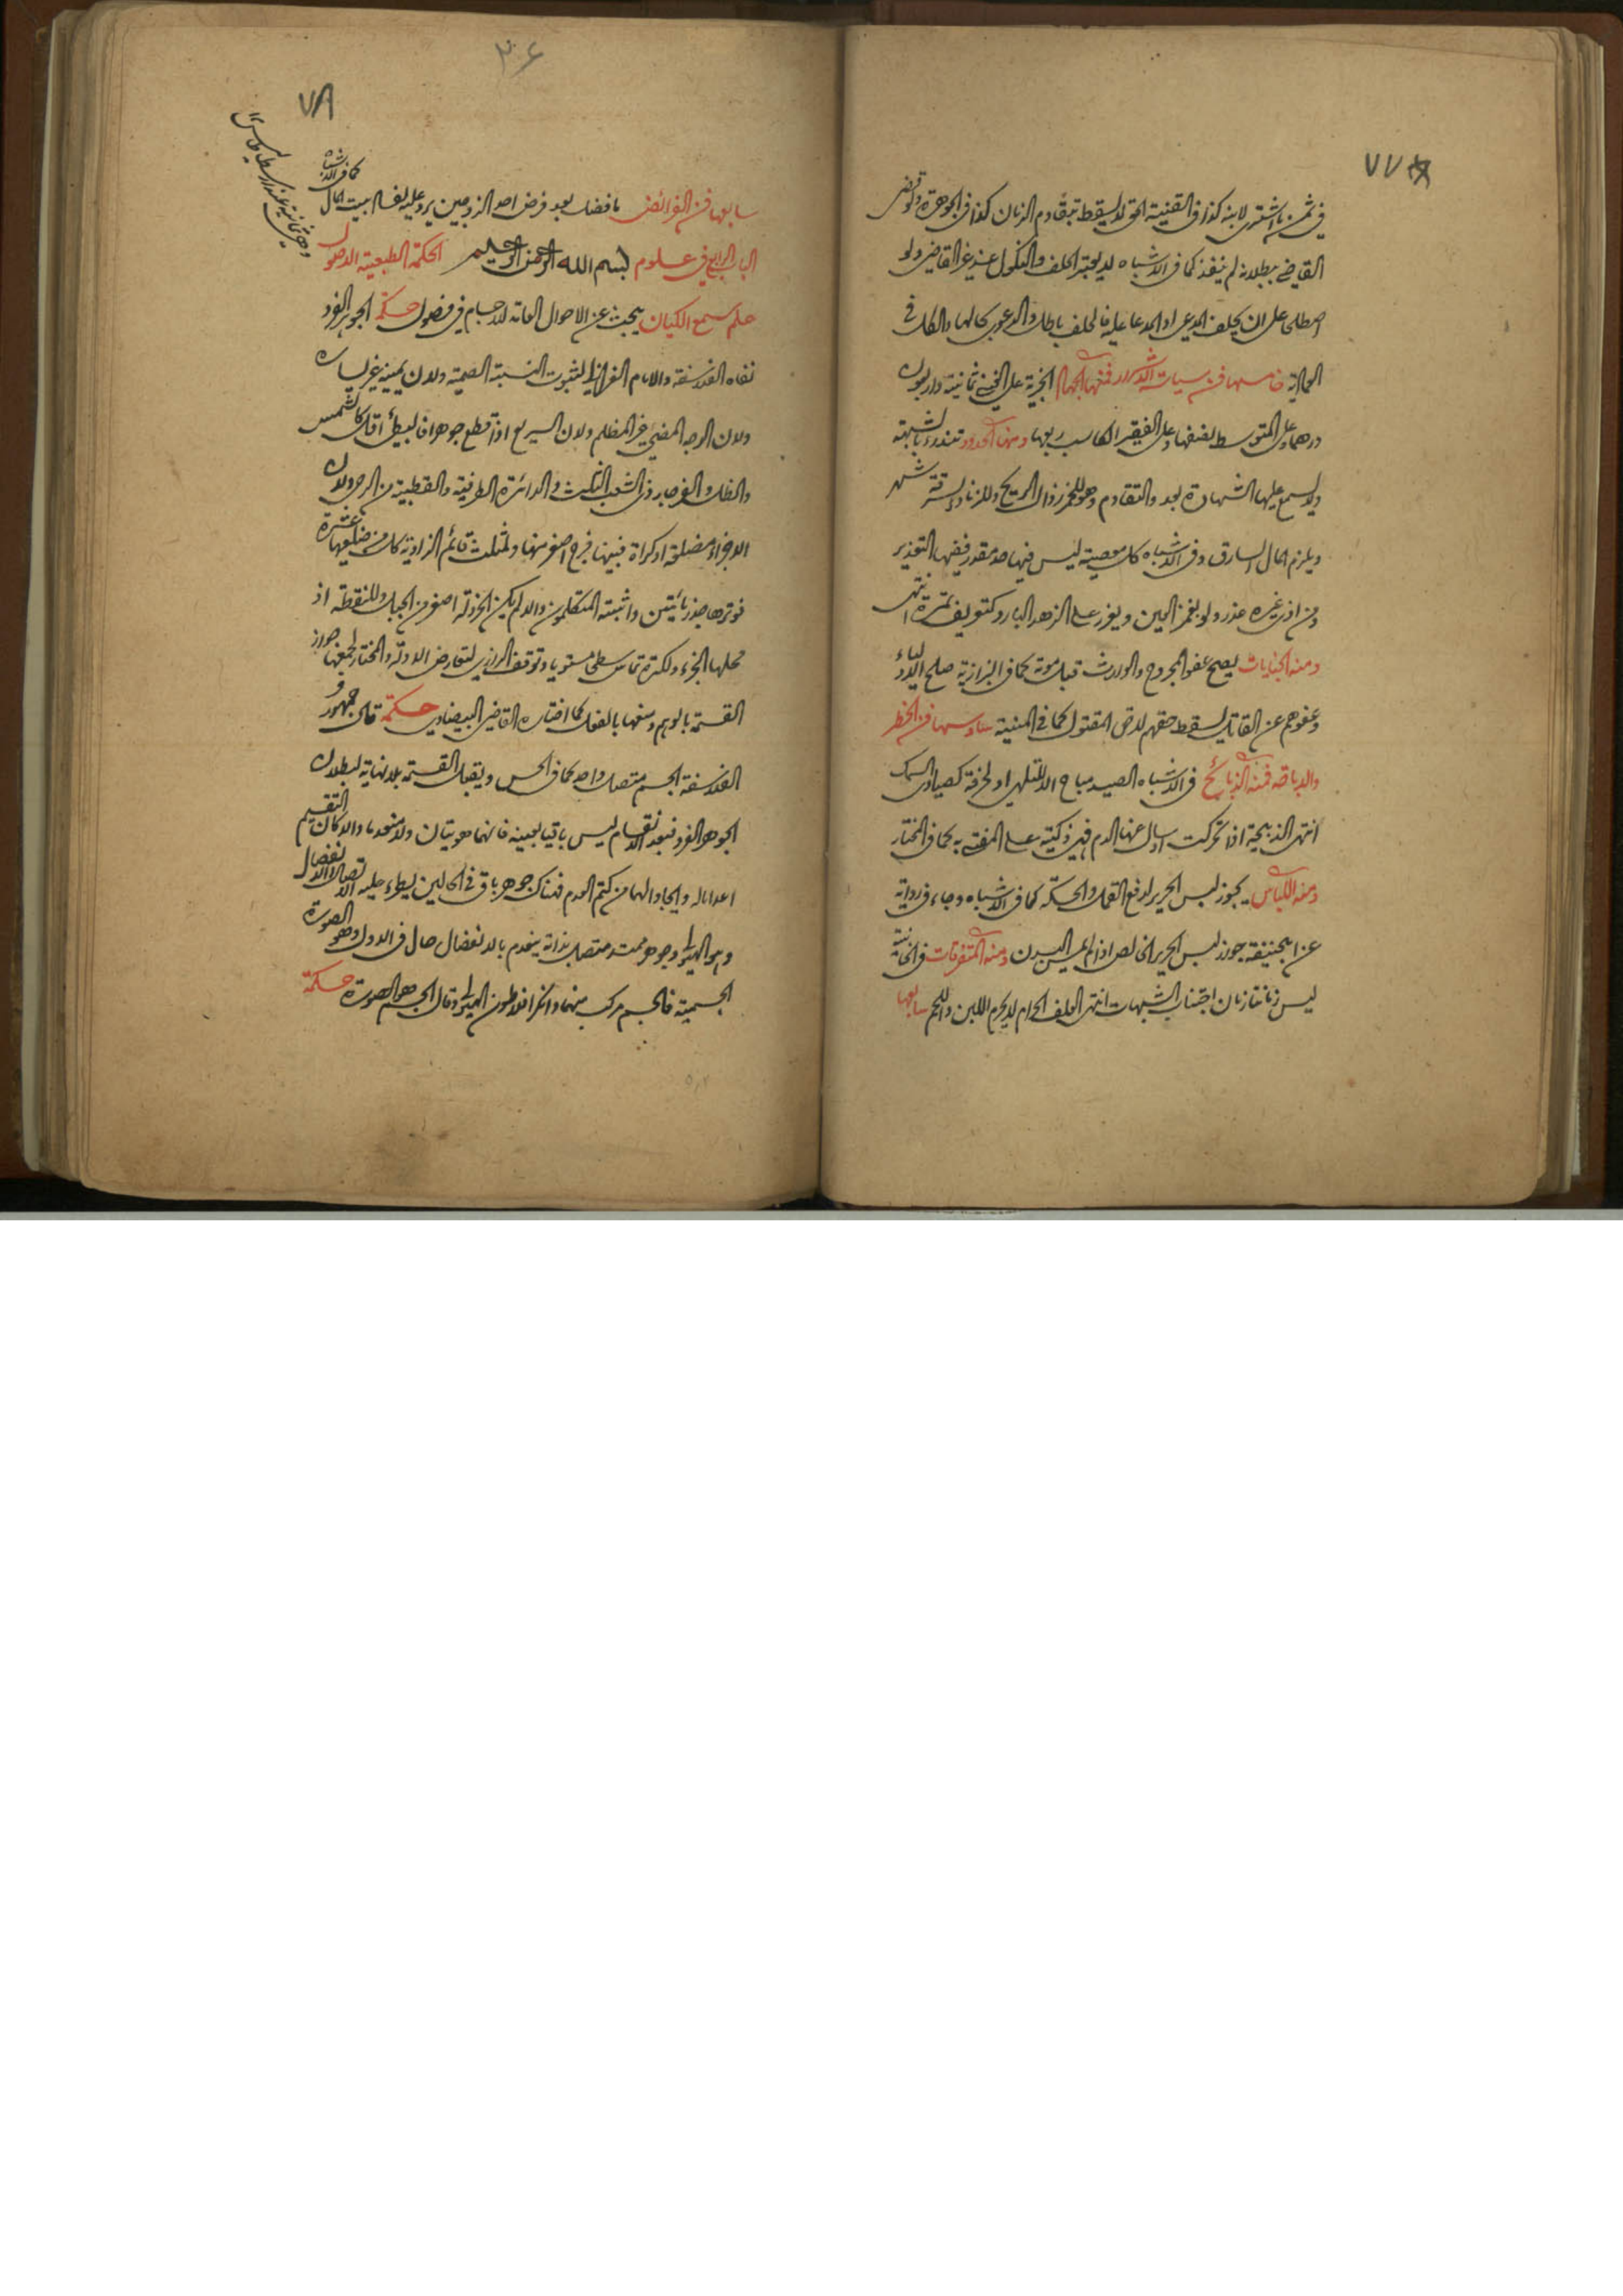 ٧٧
في ثمن ما اشترى لابنه كذا في القنية الحق لا يسقط بتقادم الزمان كذا في الجوهرة ولو قضى
القاضي ببطلانه لم ينفذ كما في الاشباه لا يعتبر الحلف والنكول عند غير القاضي ولو
اصطلحا على ان يحلف المدعي او المدعا عليه فالحلف باطل والدعوى بحالها والكل في
العمادية خامسها فن سياسات الاسرار فمنها الجهاد الجزية على الغني ثمانية واربعون
درهما وعلى المتوسط نصفها وعلى الفقير الكاسب ربعها ومنها الحدود تندرء بالشبهة
ولا يسمع عليها الشهادة بعد التقادم وهو للخمر زوال الريح وللزنا والسرقة شهر
ويلزم المال السارق وفي الاشباه كل معصية ليس فيها حد مقدر ففيها التعزير
ومن اذى غيره عذر ولو بغمز العين ويعزر على الزهد البارد كتعريف تمرة انتهى
ومنه الجنايات يصح عفو المجروح والوارث قبل موته كما في البزازية صلح الاولياء
وعفوهم عن القاتل يسقط حقهم لا حق المقتول كما في المنية سادسها فن الحظر
والاباحة فمنه الذبائح في الاشباه الصيد مباح الا للتلهي او لحرفة كصيادي السمك
انتهى الذبيحة اذا تحركت او سال عنها الدم فهي ذكية على المفتى به كما في المختار
ومنه اللباس يجوز لبس الحرير لدفع القمل والحكة كما في الاشباه وجاء في رواية
عن ابي حنيفة جواز لبس الحرير الخالص اذا لم يمس البدن ومنه المتفرقات في الخانية
ليس زماننا زمان اجتناب الشبهات انتهى العلف الحرام لا يحرم اللبن واللحم سابعها
٣٤
٧٨
سابعها فن الفرائض ما فضل بعد فرض احد الزوجين يرد عليه لفساد بيت المال
كما في الاشباه
الباب الرابع في علوم بسم الله الرحمن الرحيم الحكمة الطبيعية الاصول
علم سمع الكيان يبحث عن الاحوال العامة للاجسام في فصول حكمة الجوهر الفرد
نفاه الفلاسفة والامام الغزالي لثبوت النسبة الصمية ولان يمينه غير يساره
ولان الوجه المضيء غير المظلم ولان السريع اذا قطع جوهرا فالبطيء اقل كالشمس
والظل والفرجار ذي الشعب الثلث والدائرة الطرفية والقطبية من الرحى ولان
الاجزاء مضلعة او كراة فبينها فرج اصغر منها ولمثلث قائم الزاوية كل من ضلعيها عشرة
فوترها جذر مائتين واثبته المتكلمون والا لم يكن الخردلة اصغر من الجبل وللنقطة اذ
محلها الجزء ولكرة تماس سطحا مستويا وتوقف الرازي لتعارض الادلة والمختار لجمعها جواز
القسمة بالوهم ومنعها بالفعل كما اختاره القاضي البيضاوي حكمة قال جمهور
الفلاسفة الجسم متصل واحد كما في الحس ويقبل القسمة بلا نهاية لبطلان
الجوهر الفرد فبعد الانقسام ليس باقيا بعينه فانهما هويتان ولا منعدما والا كان التقسيم
اعداما له وايجادا لهما من كتم العدم فهناك جوهر باق في الحالين يطرء عليه الاتصال والانفصال
وهو الهيولى وجوهر ممتد متصل بذاته ينعدم بالانفصال حال في الاول وهو الصورة
الجسمية فالجسم مركب منهما وانكر افلاطون الهيولى وقال الجسم هو الصورة حكمة